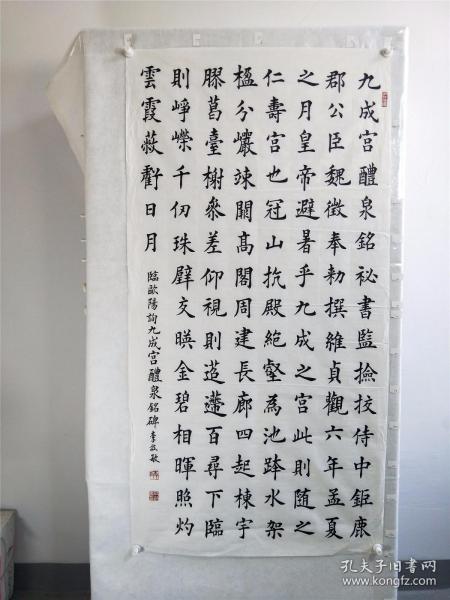 九成宮醴泉銘祕書監撿挍侍中鉅鹿
郡公臣魏徵奉勅撰維貞觀六年孟夏
之月皇帝避暑乎九成之宮此則隨之
仁壽宮也冠山抗殿絕壑為池跨水架
楹分巖竦闕高閣周建長廊四起棟宇
膠葛臺榭參差仰視則迢遰百尋下臨
則崢嶸千仞珠璧交暎金碧相暉照灼
雲霞蔽虧日月
臨歐陽詢九成宮醴泉銘碑 李敏
孔夫子旧书网
www.kongfz.com